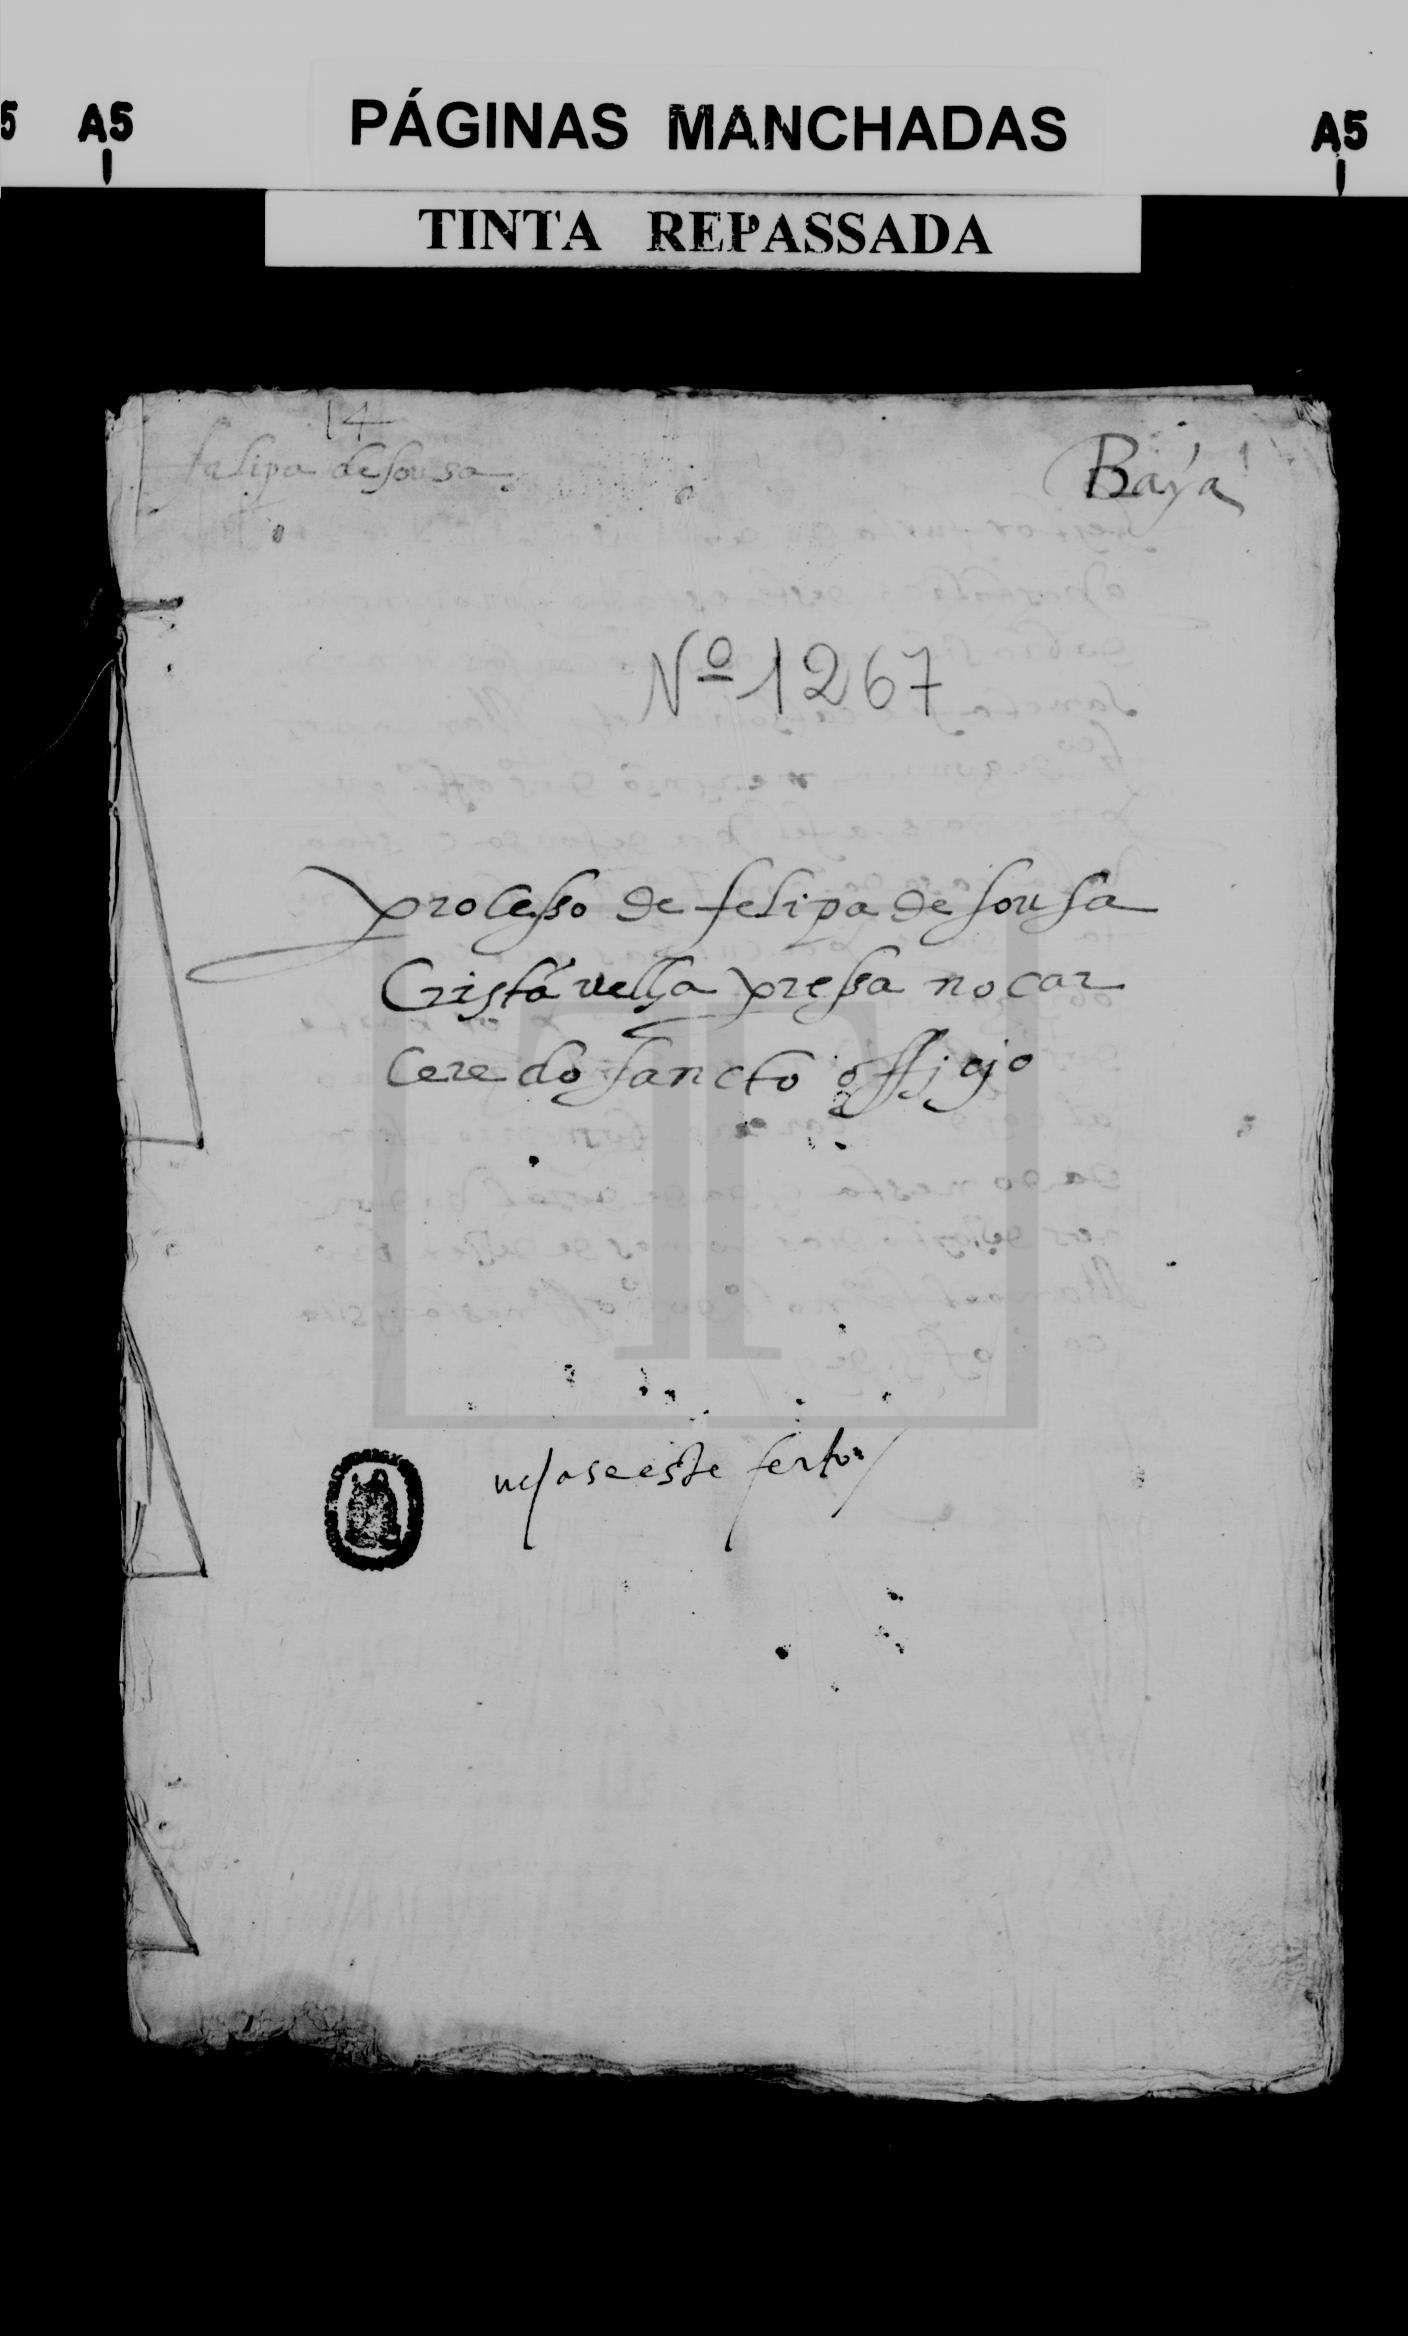 5 A5 PÁGINAS MANCHADAS A5
TINTA REPASSADA
14
falipa de sousa
Baýa
Nº 1267
processo de felipa de sousa
Cristã velha pressa no car
cere do sancto officjo
seeste feito